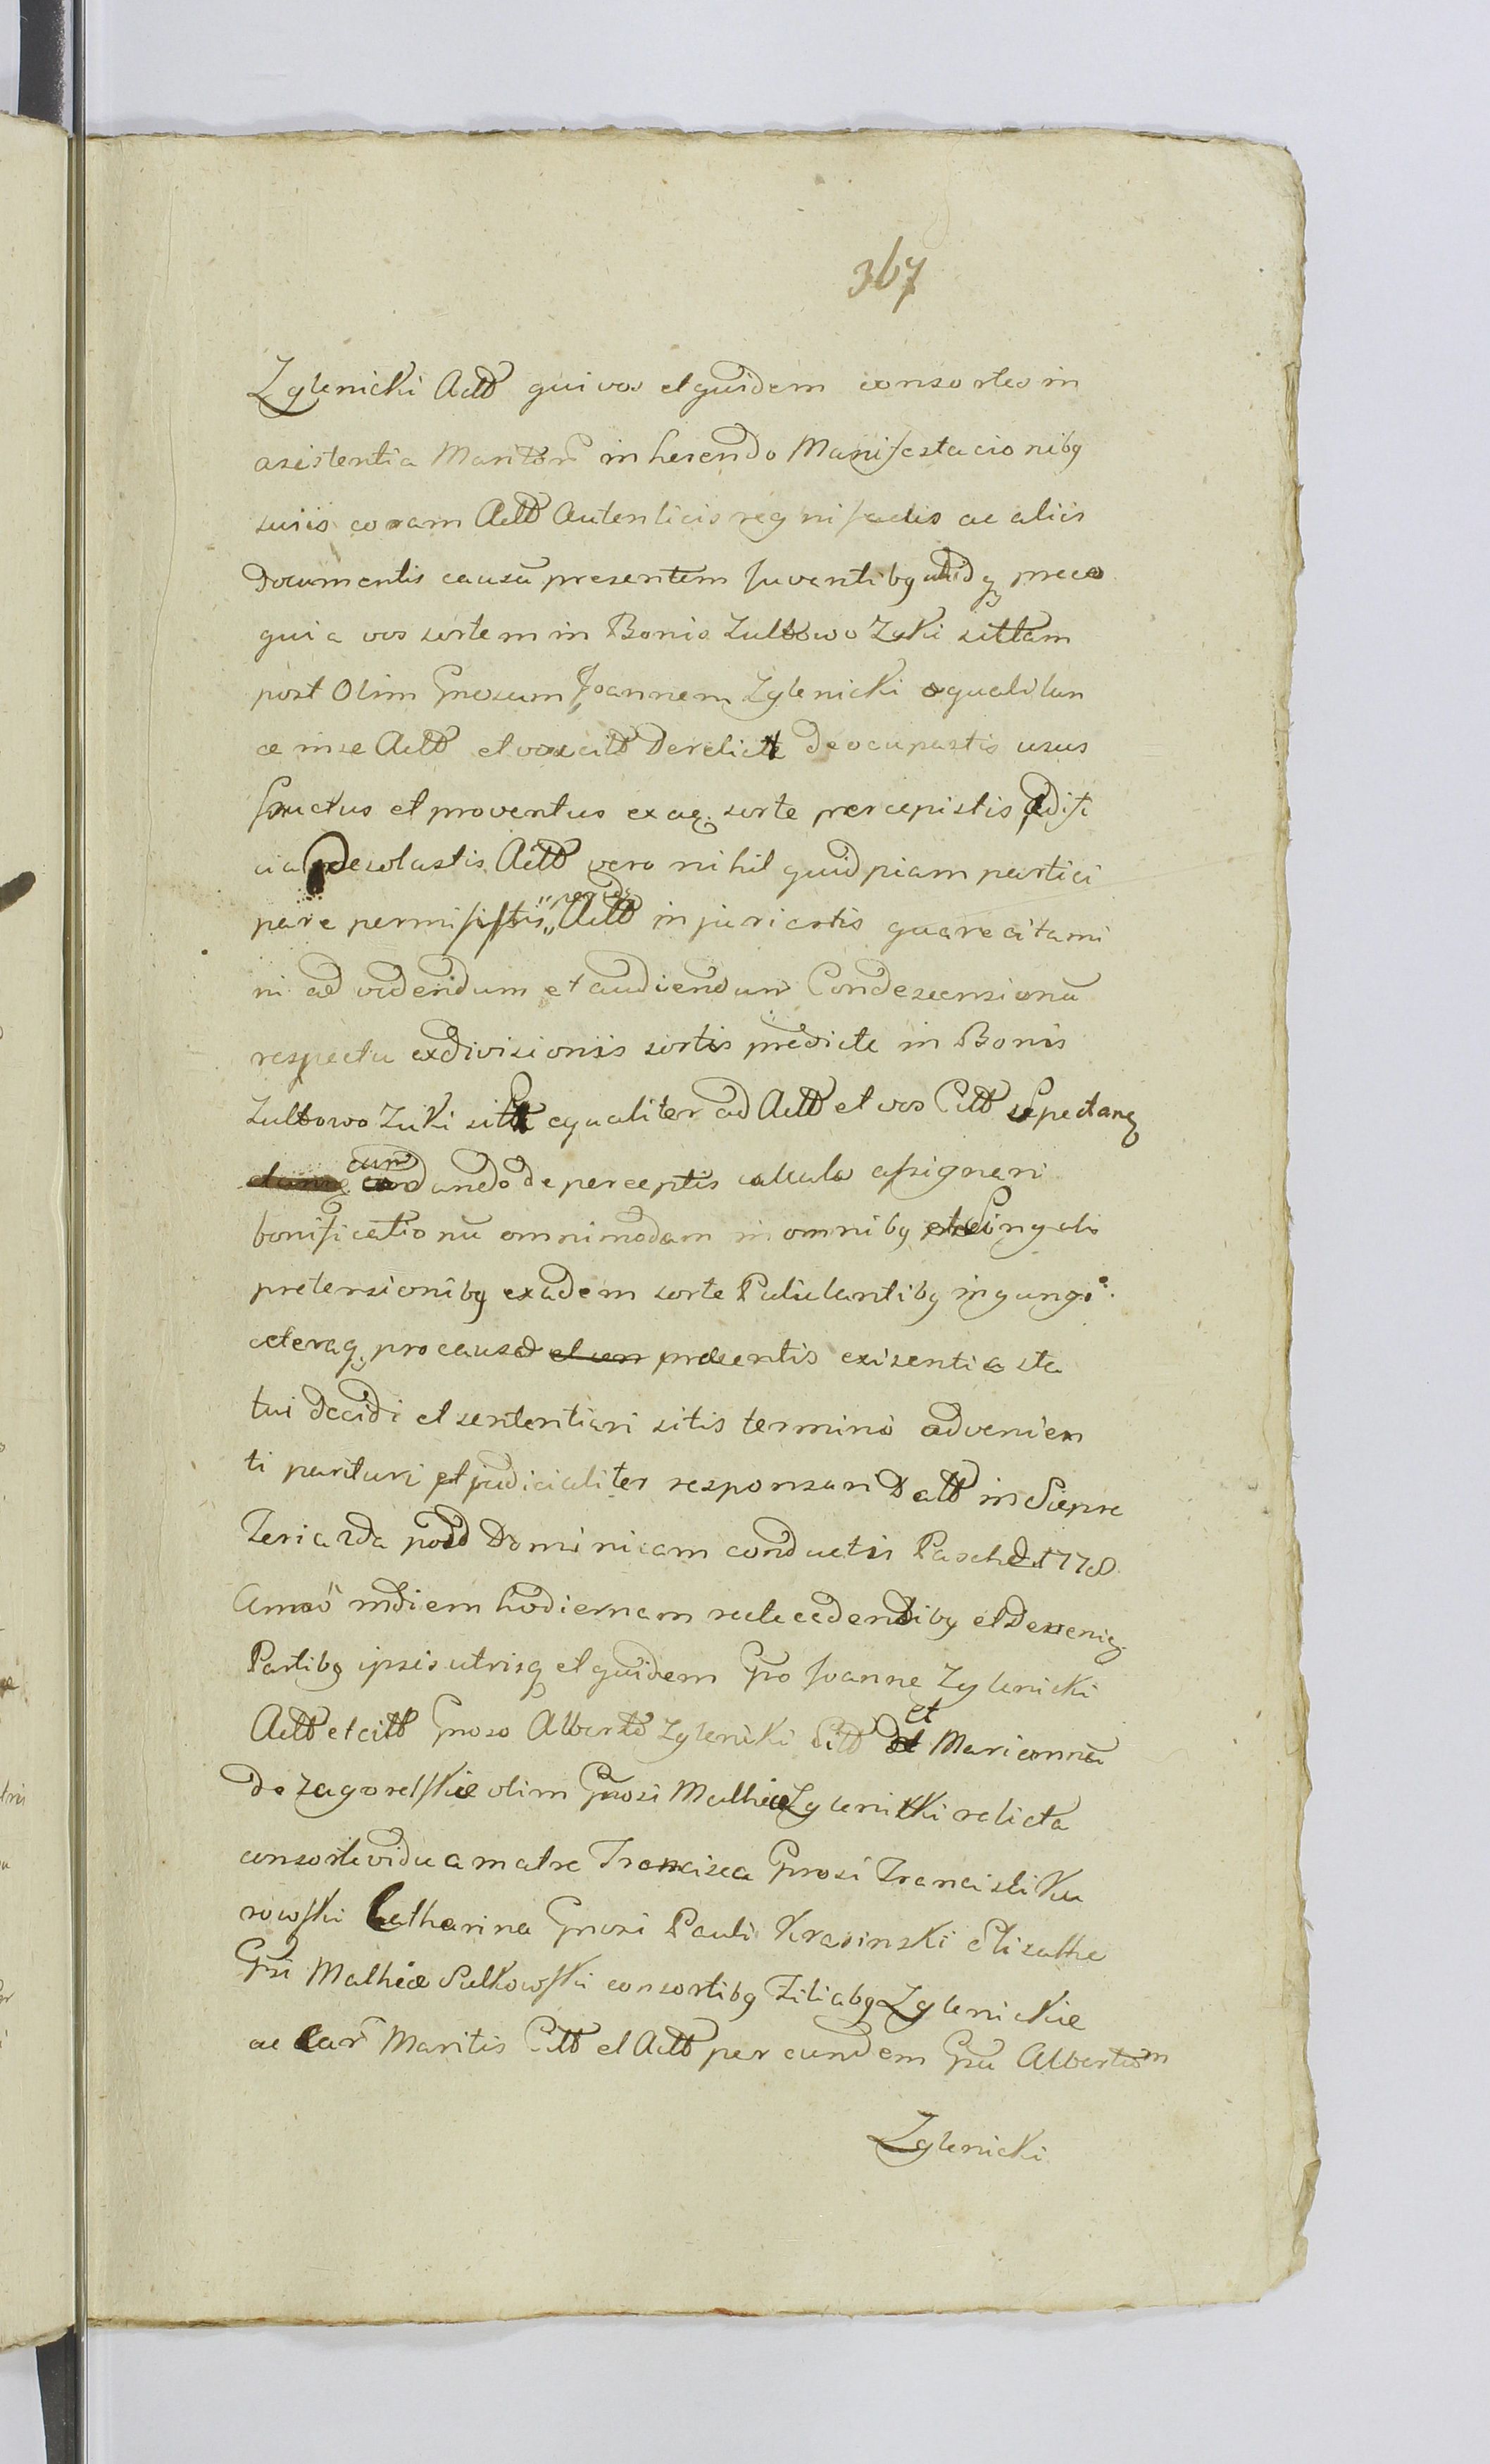 367
Zglenicki Actt qui vos et quidem consortes in
asistentia Maritor inherendo Manifestacionibg
suis coram Actt Autenticis regni factis ac aliis
Documentis causã presentem juventibg preco
quia vos sortem in Bonis Zultowo Zuki sittam
post Olim Gnosum Joannem Zglenicki equali lan
ce in se Actt et vos citt Derelict deocupastis usus
fructus et proventus ex aq. sorte percepistis edifi
cia Desolastis Actt vero nihil quidpiam partici
pare permisistis Actt injuriastis quare citami
ni ad videndum et audiendum Condescensionẽ
respectu exdivisionis sortis predicte in Bonis
Zultowo Zuki sitt equaliter ad Actt et vos Citt Spectanq
cum de perceptis calculo assignari
bonificationẽ omnimodam in omnibg et Singulis
pretensionibg exadem sorte Pululantibg ingungi
ceteraq. pro causæ præsentis exisentia sta
tui decidi et sententiari sitis termino advenien
ti parituri et judicialiter responsuri Datt in Siepre
Feria 2da postd Dominicam conductus Paschæ 1778
Anno in diem hodiernam recte cedendibg et Devenieg.
Partibg ipsis utrisq et quidem Gno Joanne Zglenicki
Actt et citt Gnoso Alberto Zglenicki Citt et Mariannã
de Zagorelskie olim Gnosi Mathiæ Zglenicki relicta
consorte vidua matre Francisca Gnosi Francisci Ku
rowski Catharina Gnosi Pauli Krasinski Elisabthe
Gnsi Mathiæ Sulkowski consortibg Filiabg Zglenickie
ac ear Maritis Citt et Actt per eundem Gnũ Albertum
Zglenicki